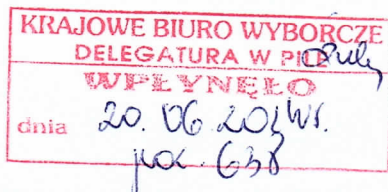 KRAJOWE BIURO WYBORCZE
DELEGATURA W PILE
WPŁYNĘŁO
dnia 20. 06. 2024r.
poz. 638